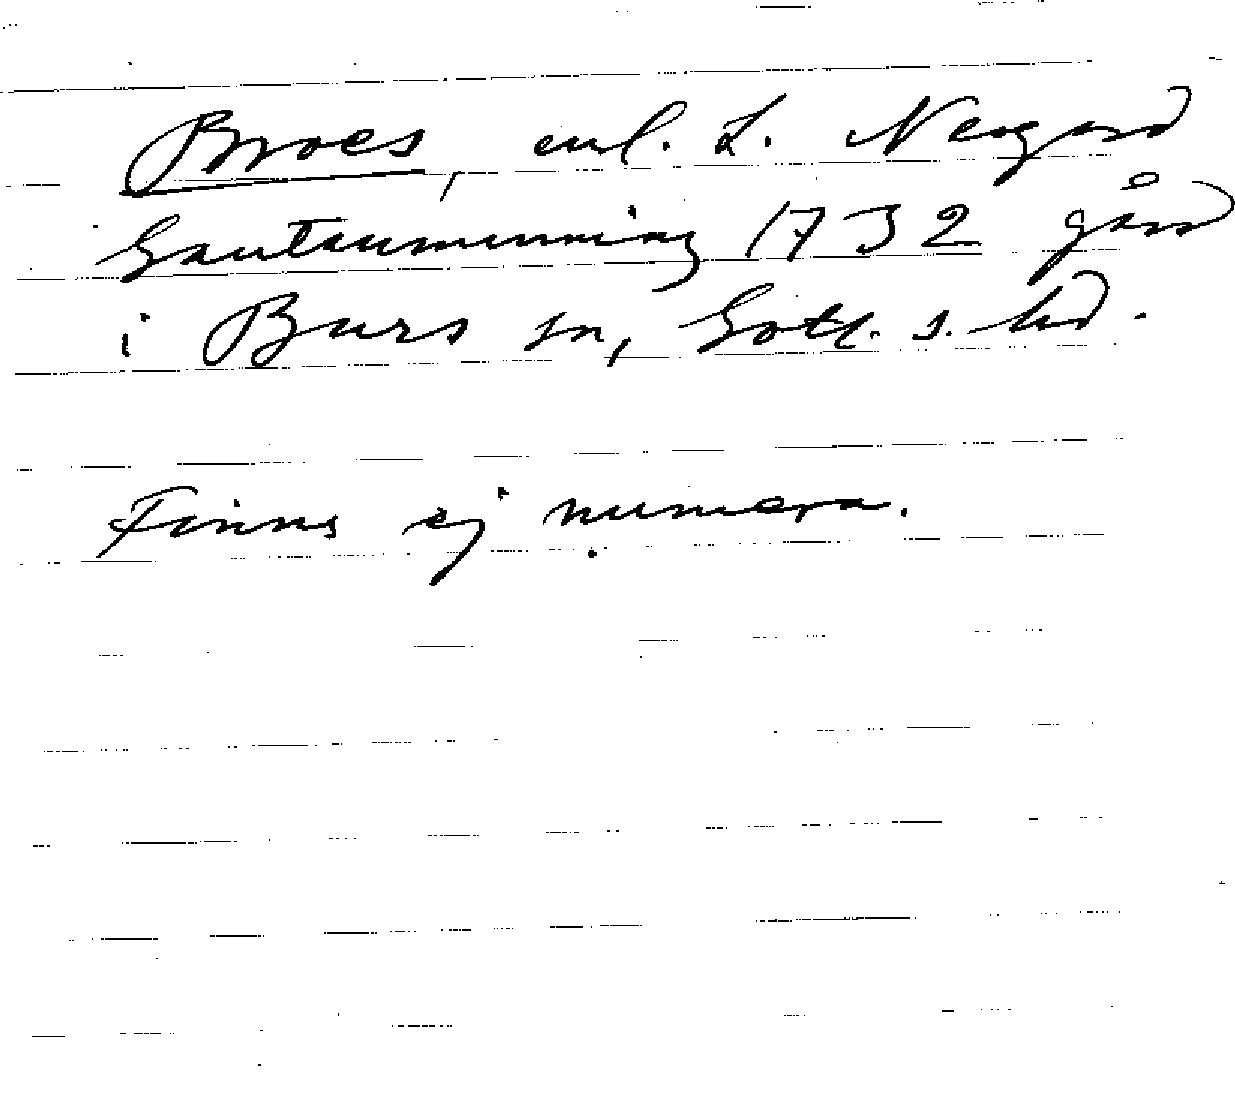 Broes, enl. L. Nergård
Gautaumminning 1732 gård
i Burs sn, Gotl. s. hd.
Finns ej numera.